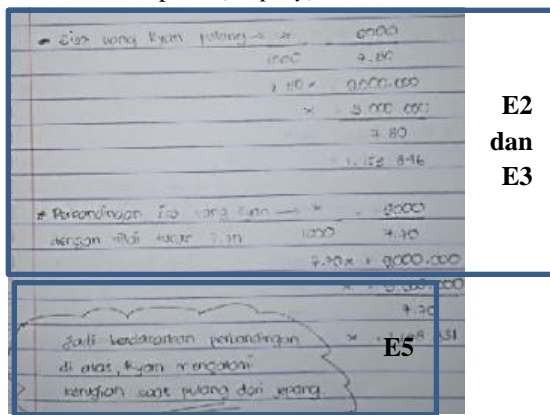 Sisa uang Ryan pulang → x 9000
1000 7.80
7.80 x 9.000.000
x 9.000.000
7.80
1.153.846
E2
dan
E3
# Perbandingan sisa uang Ryan → x 9000
dengan nilai tukar 7.70 1000 7.70
7.70 x = 9.000.000
x = 9.000.000
7.70
x
E5
Jadi berdasarkan perbandingan
di atas, Ryan mengalami
kerugian saat pulang dari jepang.